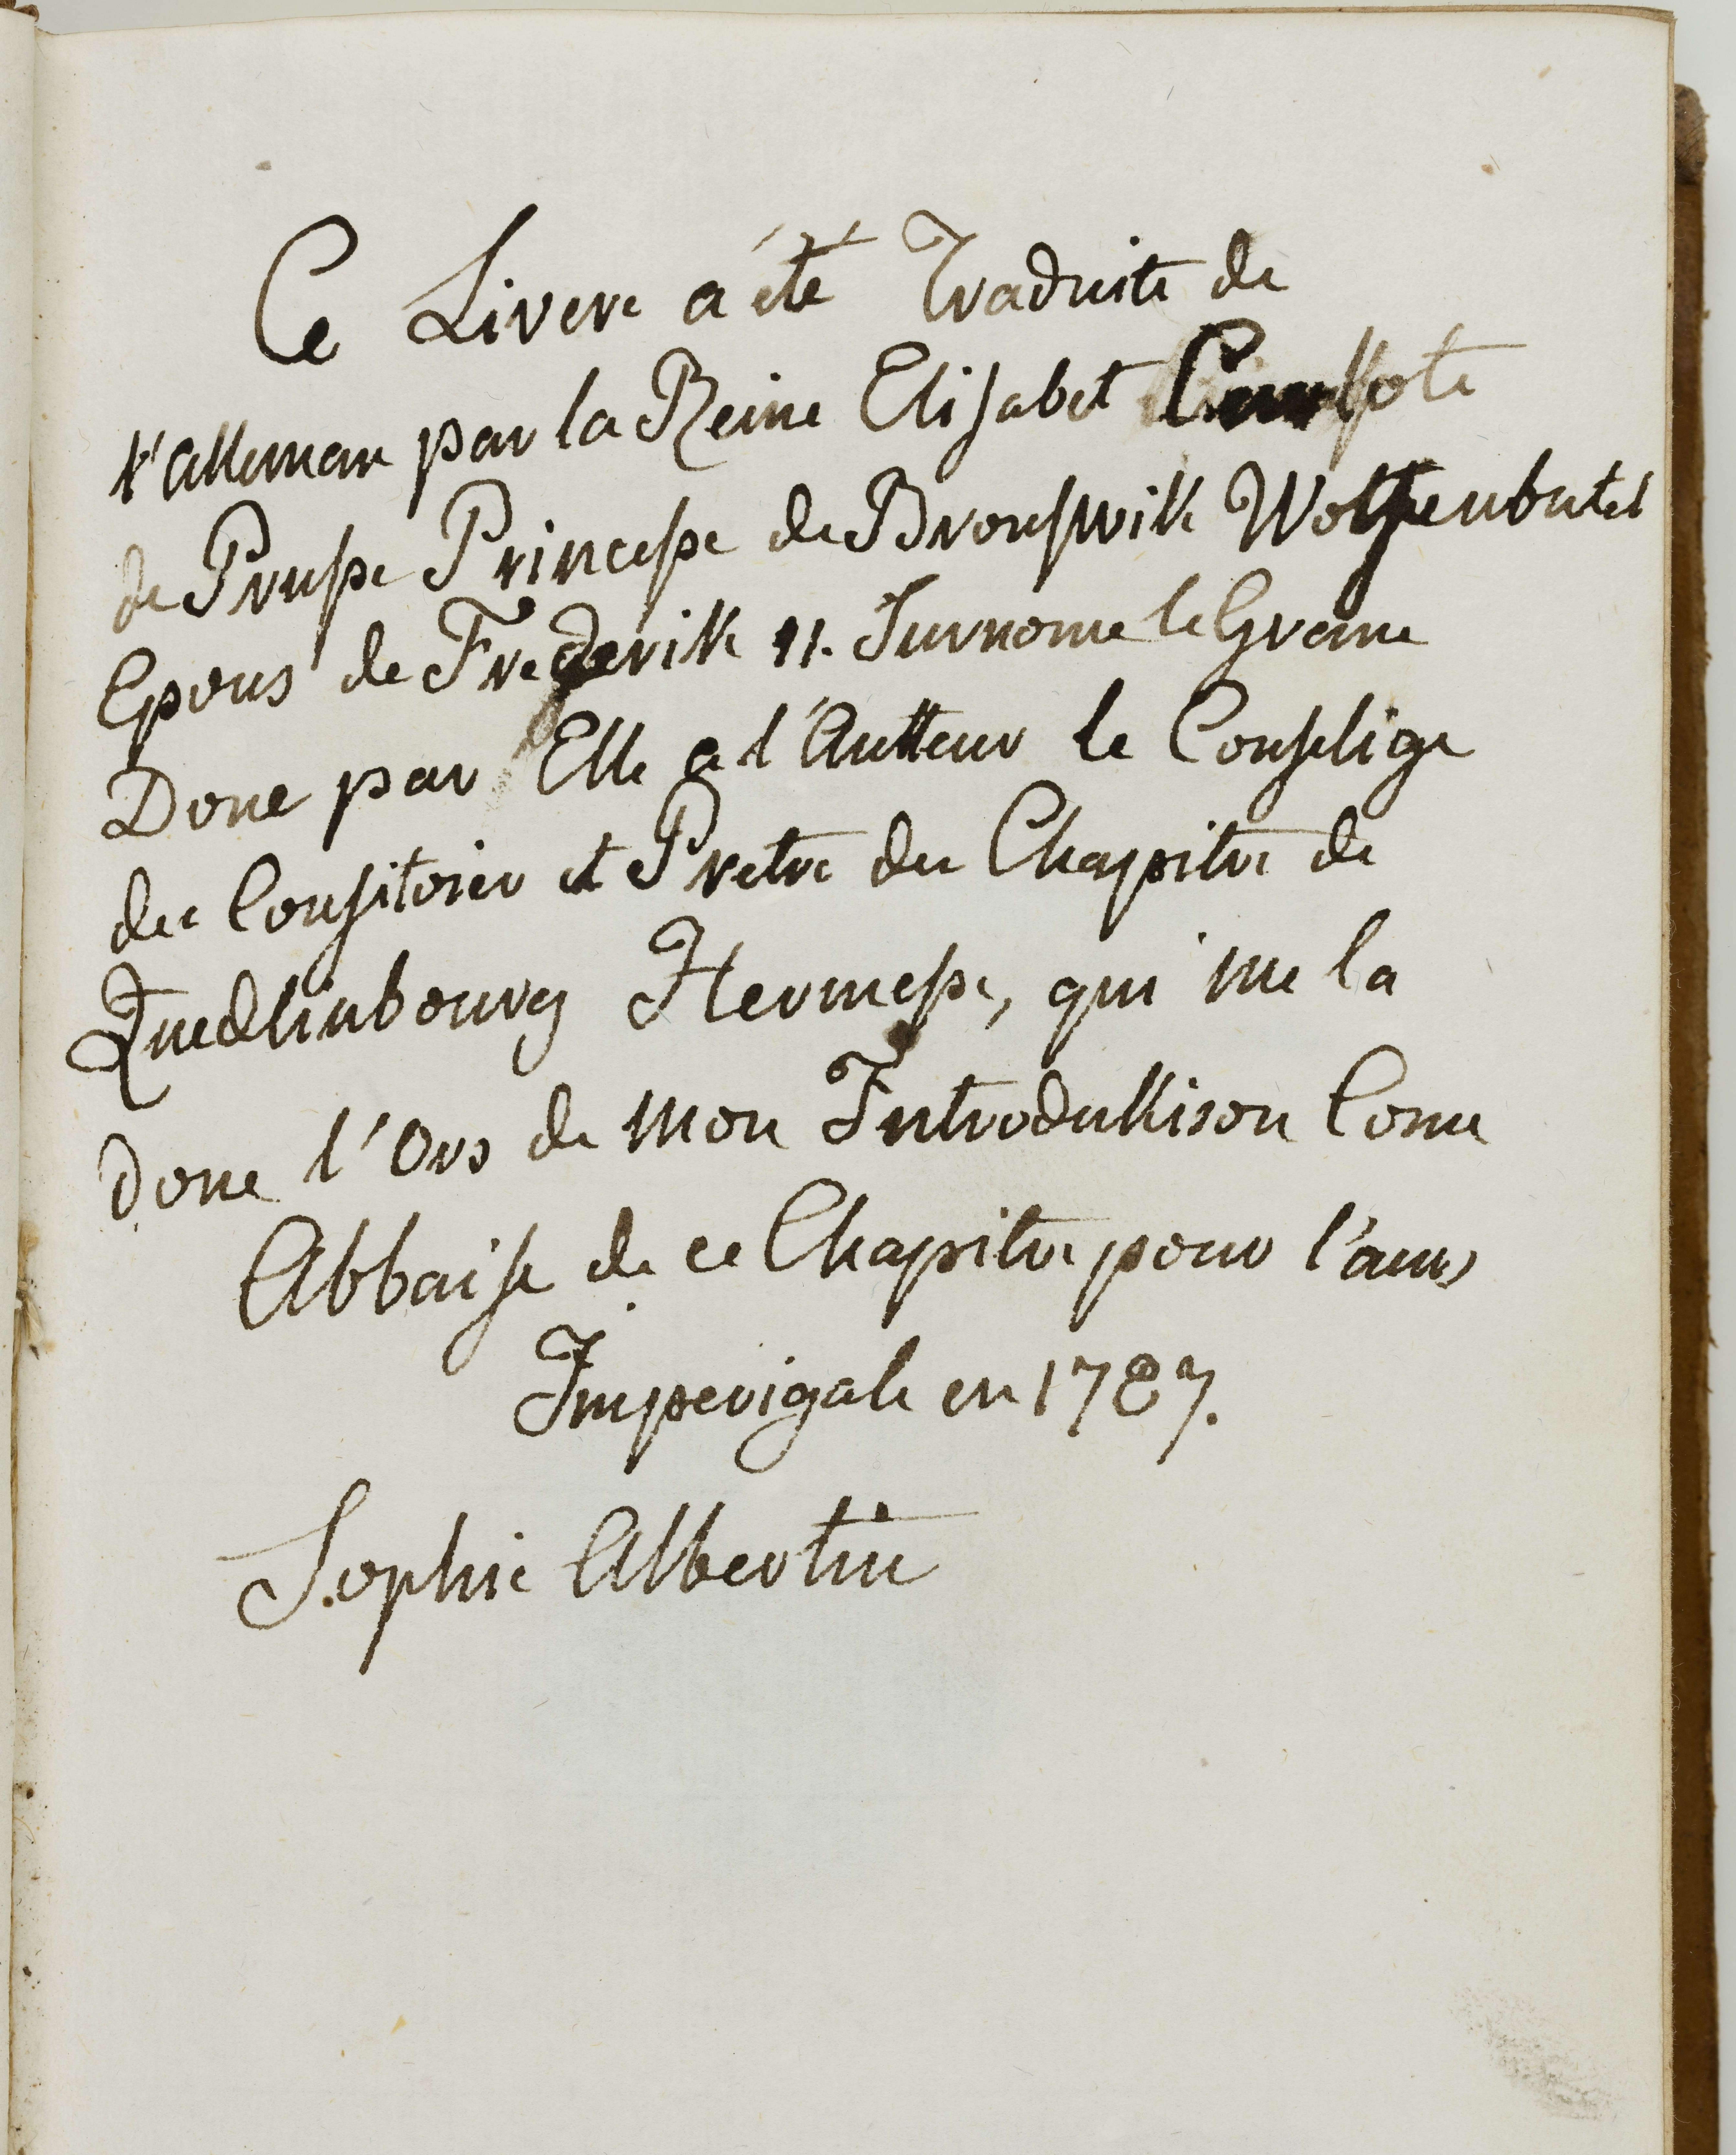 Ce Livere a été Traduite de
l'alleman par la Reine Elisabet
de Prusse Princesse de Brouswik Wolfenbutel
Epous de Frederik II. Surnome le Grane
Done par Elle a l'Autteur le Conselige
du Consitoier et Pretre du Chapitre de
Quedlinbourg Hermesse, qui me la
done l'Ors de mon Introdukison Come
Abbaise de ce Chapitre pour l'ans
Imperigale en 1787.
Sophie Albertine